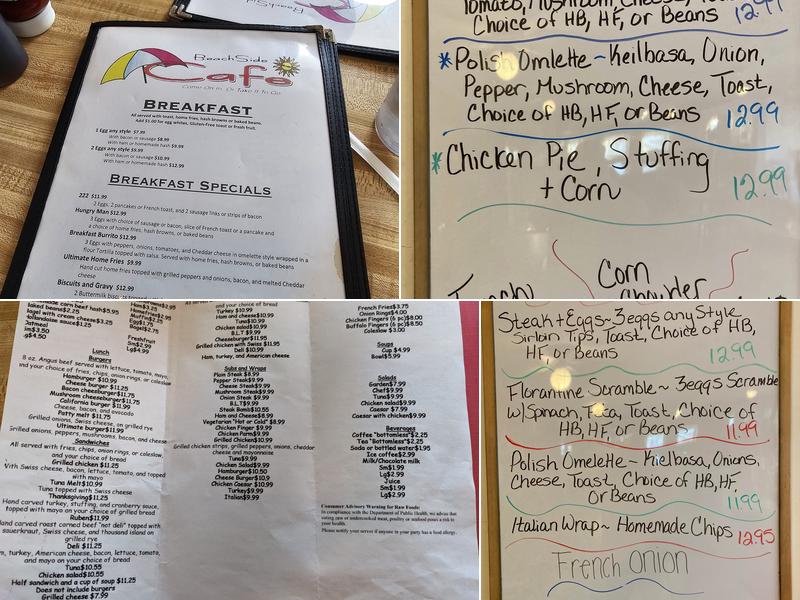 BeachSide
Cafe
Come On In, Or Take It To Go
BREAKFAST
All served with toast, home fries, hash browns or baked beans.
Add $1.00 for egg whites, Gluten-Free toast or fresh fruit.
1 Egg any style $7.99
With bacon or sausage $8.99
With ham or homemade hash $9.99
2 Eggs any style $9.99
With bacon or sausage $10.99
With ham or homemade hash $12.99
BREAKFAST SPECIALS
222 $11.99
2 Eggs, 2 pancakes or French toast, and 2 sausage links or strips of bacon
Hungry Man $12.99
3 Eggs with choice of sausage or bacon, slice of French toast or a pancake and
a choice of home fries, hash browns, or baked beans
Breakfast Burrito $12.99
3 Eggs with peppers, onions, tomatoes, and Cheddar cheese in omelette style wrapped in a
flour Tortilla topped with salsa. Served with home fries, hash browns, or baked beans
Ultimate Home Fries $9.99
Hand cut home fries topped with grilled peppers and onions, bacon, and melted Cheddar
cheese
Biscuits and Gravy $12.99
2 Buttermilk
Tomato, Mushroom, Cheese, Toast,
Choice of HB, HF, or Beans 12.99
*Polish Omlette ~ Keilbasa, Onion,
Pepper, Mushroom, Cheese, Toast,
Choice of HB, HF, or Beans 12.99
*Chicken Pie, Stuffing
+ Corn 12.99
Corn
Chowder
made corn beef hash$5.95
baked beans$2.25
bagel with cream cheese$3.25
hollandaise sauce$1.25
Oatmeal
Sm$3.50
Lg$4.50
Muffin$2.95
Egg$1.75
Bagel$2.95
Freshfruit
Sm$2.99
Lg$4.99
Lunch
Burgers
8 oz. Angus beef served with lettuce, tomato, mayo,
and your choice of fries, chips, onion rings, or coleslaw
Hamburger $10.99
Cheese burger $11.25
Bacon burger$11.75
Mushroom cheeseburger$11.75
California burger $11.99
Cheese, bacon, and avocado
Patty melt $11.75
Grilled onions, Swiss cheese, on grilled rye
Ultimate burger $11.99
Grilled onions, peppers, mushrooms, bacon, and cheese
Sandwiches
All served with fries, chips, onion rings, or coleslaw,
and your choice of bread
Grilled chicken $11.25
With Swiss cheese, bacon, lettuce, tomato, and topped
with mayo
Tuna Melt$10.99
Tuna topped with Swiss cheese
Thanksgiving$11.25
Hand carved turkey, stuffing, and cranberry sauce,
topped with mayo on your choice of grilled bread
Ruben$11.99
Hand carved roast corned beef "not deli" topped with
sauerkraut, Swiss cheese, and thousand island on
grilled rye
Deli $11.25
Ham, turkey, American cheese, bacon, lettuce, tomato,
and mayo on your choice of bread
Tuna$10.55
Chicken salad$10.55
Half sandwich and a cup of soup $11.25
Does not include burgers
Grilled cheese $7.99
and your choice of bread
Turkey $10.99
Ham and cheese$10.99
Tuna$10.99
Chicken salad$10.99
B.L.T$9.99
Cheeseburger$11.95
Grilled chicken with Swiss $11.95
Deli $10.99
Ham, turkey, and American cheese
Subs and Wraps
Plain Steak $8.99
Pepper Steak$9.99
Cheese Steak$9.99
Mushroom Steak$9.99
Onion Steak $9.99
B.L.T$9.99
Steak Bomb$10.55
Ham and Cheese$8.99
Vegetarian "Hot or Cold" $8.99
Chicken Finger $9.99
Chicken Parm$9.99
Grilled Chicken$10.99
Grilled chicken strips, grilled peppers, onions, cheddar
cheese and mayonnaise
Tuna$9.99
Chicken Salad$9.99
Hamburger$10.50
Cheese Burger $10.9
Chicken Caesar $10.99
Turkey$9.99
Italian$9.99
French Fries$3.75
Onion Rings$4.00
Chicken Fingers (6 pc)$8.00
Buffalo Fingers (6 pc)$8.50
Coleslaw $3.00
Soups
Cup $4.99
Bowl$5.99
Salads
Garden$7.99
Chef$9.99
Tuna$9.99
Chicken salad$9.99
Caesar $7.99
Caesar with chicken$9.99
Beverages
Coffee "bottomless"$2.25
Tea "Bottomless"$2.25
Soda or bottled water$1.95
Ice coffee$2.99
Milk/Chocolate milk
Sm$1.99
Lg$2.99
Juice
Sm$1.99
Lg$2.99
Consumer Advisory Warning for Raw Foods:
In compliance with the Department of Public Health, we advise that
eating raw or undercooked meat, poultry or seafood poses a risk to
your health.
Please notify your server if anyone in your party has a food allergy.
Steak + Eggs ~ 3eggs any Style,
Sirloin Tips, Toast, Choice of HB,
HF, or Beans 12.99
Florantine Scramble ~ 3eggs Scramble
w) Spinach, Feta, Toast, Choice of
HB, HF, or Beans 11.99
Polish Omelette ~ Kielbasa, Onions,
Cheese, Toast, Choice of HB, HF,
or Beans 11.99
Italian Wrap ~ Homemade Chips 12.95
French Onion